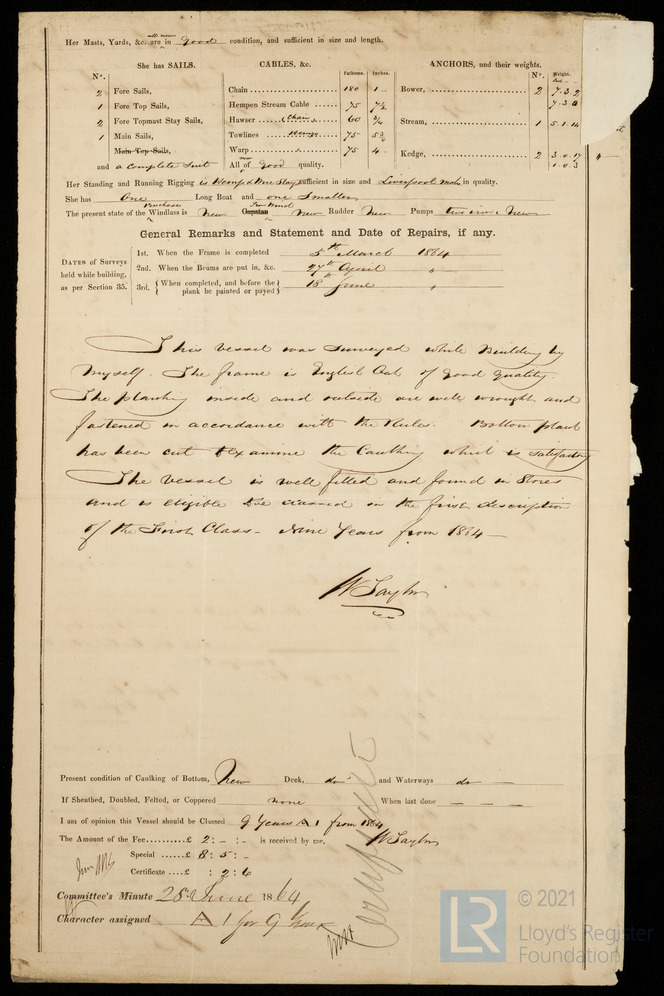 Her Masts, Yards, &c. all new are in good condition, and sufficient in size and length.
She has SAILS.
N°.
2 Fore Sails,
1 Fore Top Sails,
2 Fore Topmast Stay Sails,
1 Main Sails,
Main Top Sails,
and a complete Suit
CABLES, &c.
Fathoms. Inches.
Chain 180 1
Hempen Stream Cable 75 7½
Hawser Chain 60 ¾
Towlines 75
Warp 75 4
All of good quality.
ANCHORS, and their weights.
N°. Weight.
Bower, 2 7.3.2
7.3.0
Stream, 1 5.1.14
Kedge, 2 3.0.17
1.0.3
Her Standing and Running Rigging is Hemp & Wire Stay sufficient in size and Liverpool made in quality.
She has One Long Boat and one Smaller
The present state of the Purchase Windlass is New Capstan New Rudder New Pumps two iron New
General Remarks and Statement and Date of Repairs, if any.
DATES of Surveys held while building, as per Section 35.
1st. When the Frame is completed 5th March 1864
2nd. When the Beams are put in, &c. 27th April "
3rd. { When completed, and before the plank be painted or payed } 18th June "
This vessel was Surveyed while Building by
Myself. The frame is English Oak of good quality.
The planking inside and outside are well wrought and
fastened in accordance with the Rules. Bottom plank
has been cut to examine the Caulking which is satisfactory
The vessel is well fitted and found in Stores
and is eligible to be classed in the first description
of the First Class - Nine Years from 1864 -
W Taylor
Present condition of Caulking of Bottom, New Deck, do and Waterways do
If Sheathed, Doubled, Felted, or Coppered none When last done — — —
I am of opinion this Vessel should be Classed 9 Years A 1 from 1864
The Amount of the Fee £ 2 : - : - is received by me, W Taylor
Special £ 8 : 5 : -
Certificate £ : 2 : 6
Committee's Minute 28 June 1864
Character assigned A 1 for 9 Years
© 2021
LR
Lloyd's Register
Foundation